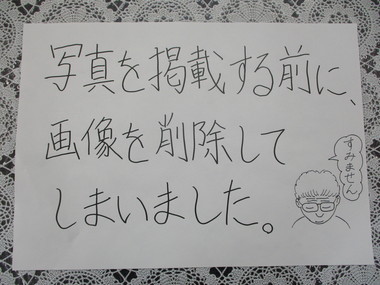 写真を掲載する前に、
画像を削除して
しまいました。
すみません